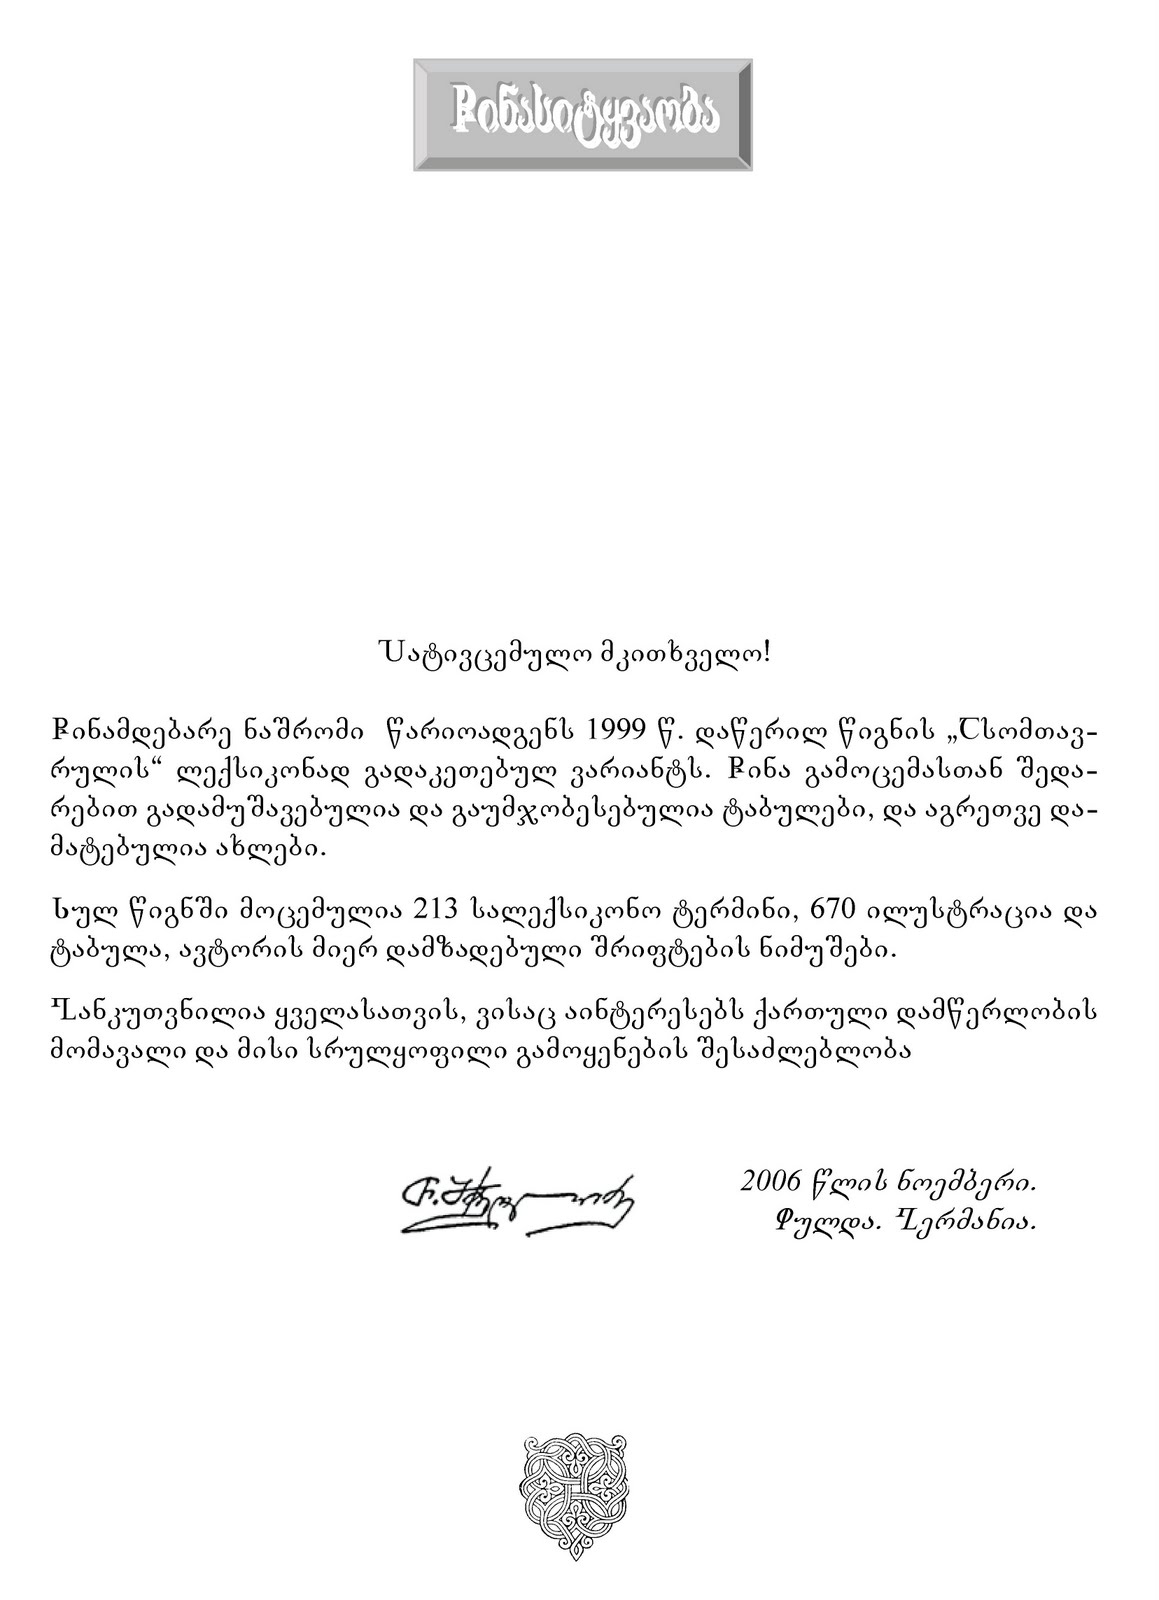 Ⴜინასიტყვაობა
Ⴎატივცემულო მკითხველო!
Ⴜინამდებარე ნაშრომი წარიოადგენს 1999 წ. დაწერილ წიგნის „Ⴀსომთავ-
რულის“ ლექსიკონად გადაკეთებულ ვარიანტს. Ⴜინა გამოცემასთან შედა-
რებით გადამუშავებულია და გაუმჯობესებულია ტაბულები, და აგრეთვე და-
მატებულია ახლები.
Ⴑულ წიგნში მოცემულია 213 სალექსიკონო ტერმინი, 670 ილუსტრაცია და
ტაბულა, ავტორის მიერ დამზადებული შრიფტების ნიმუშები.
Ⴂანკუთვნილია ყველასათვის, ვისაც აინტერესებს ქართული დამწერლობის
მომავალი და მისი სრულყოფილი გამოყენების შესაძლებლობა
2006 წლის ნოემბერი.
Ⴔულდა. Ⴂერმანია.